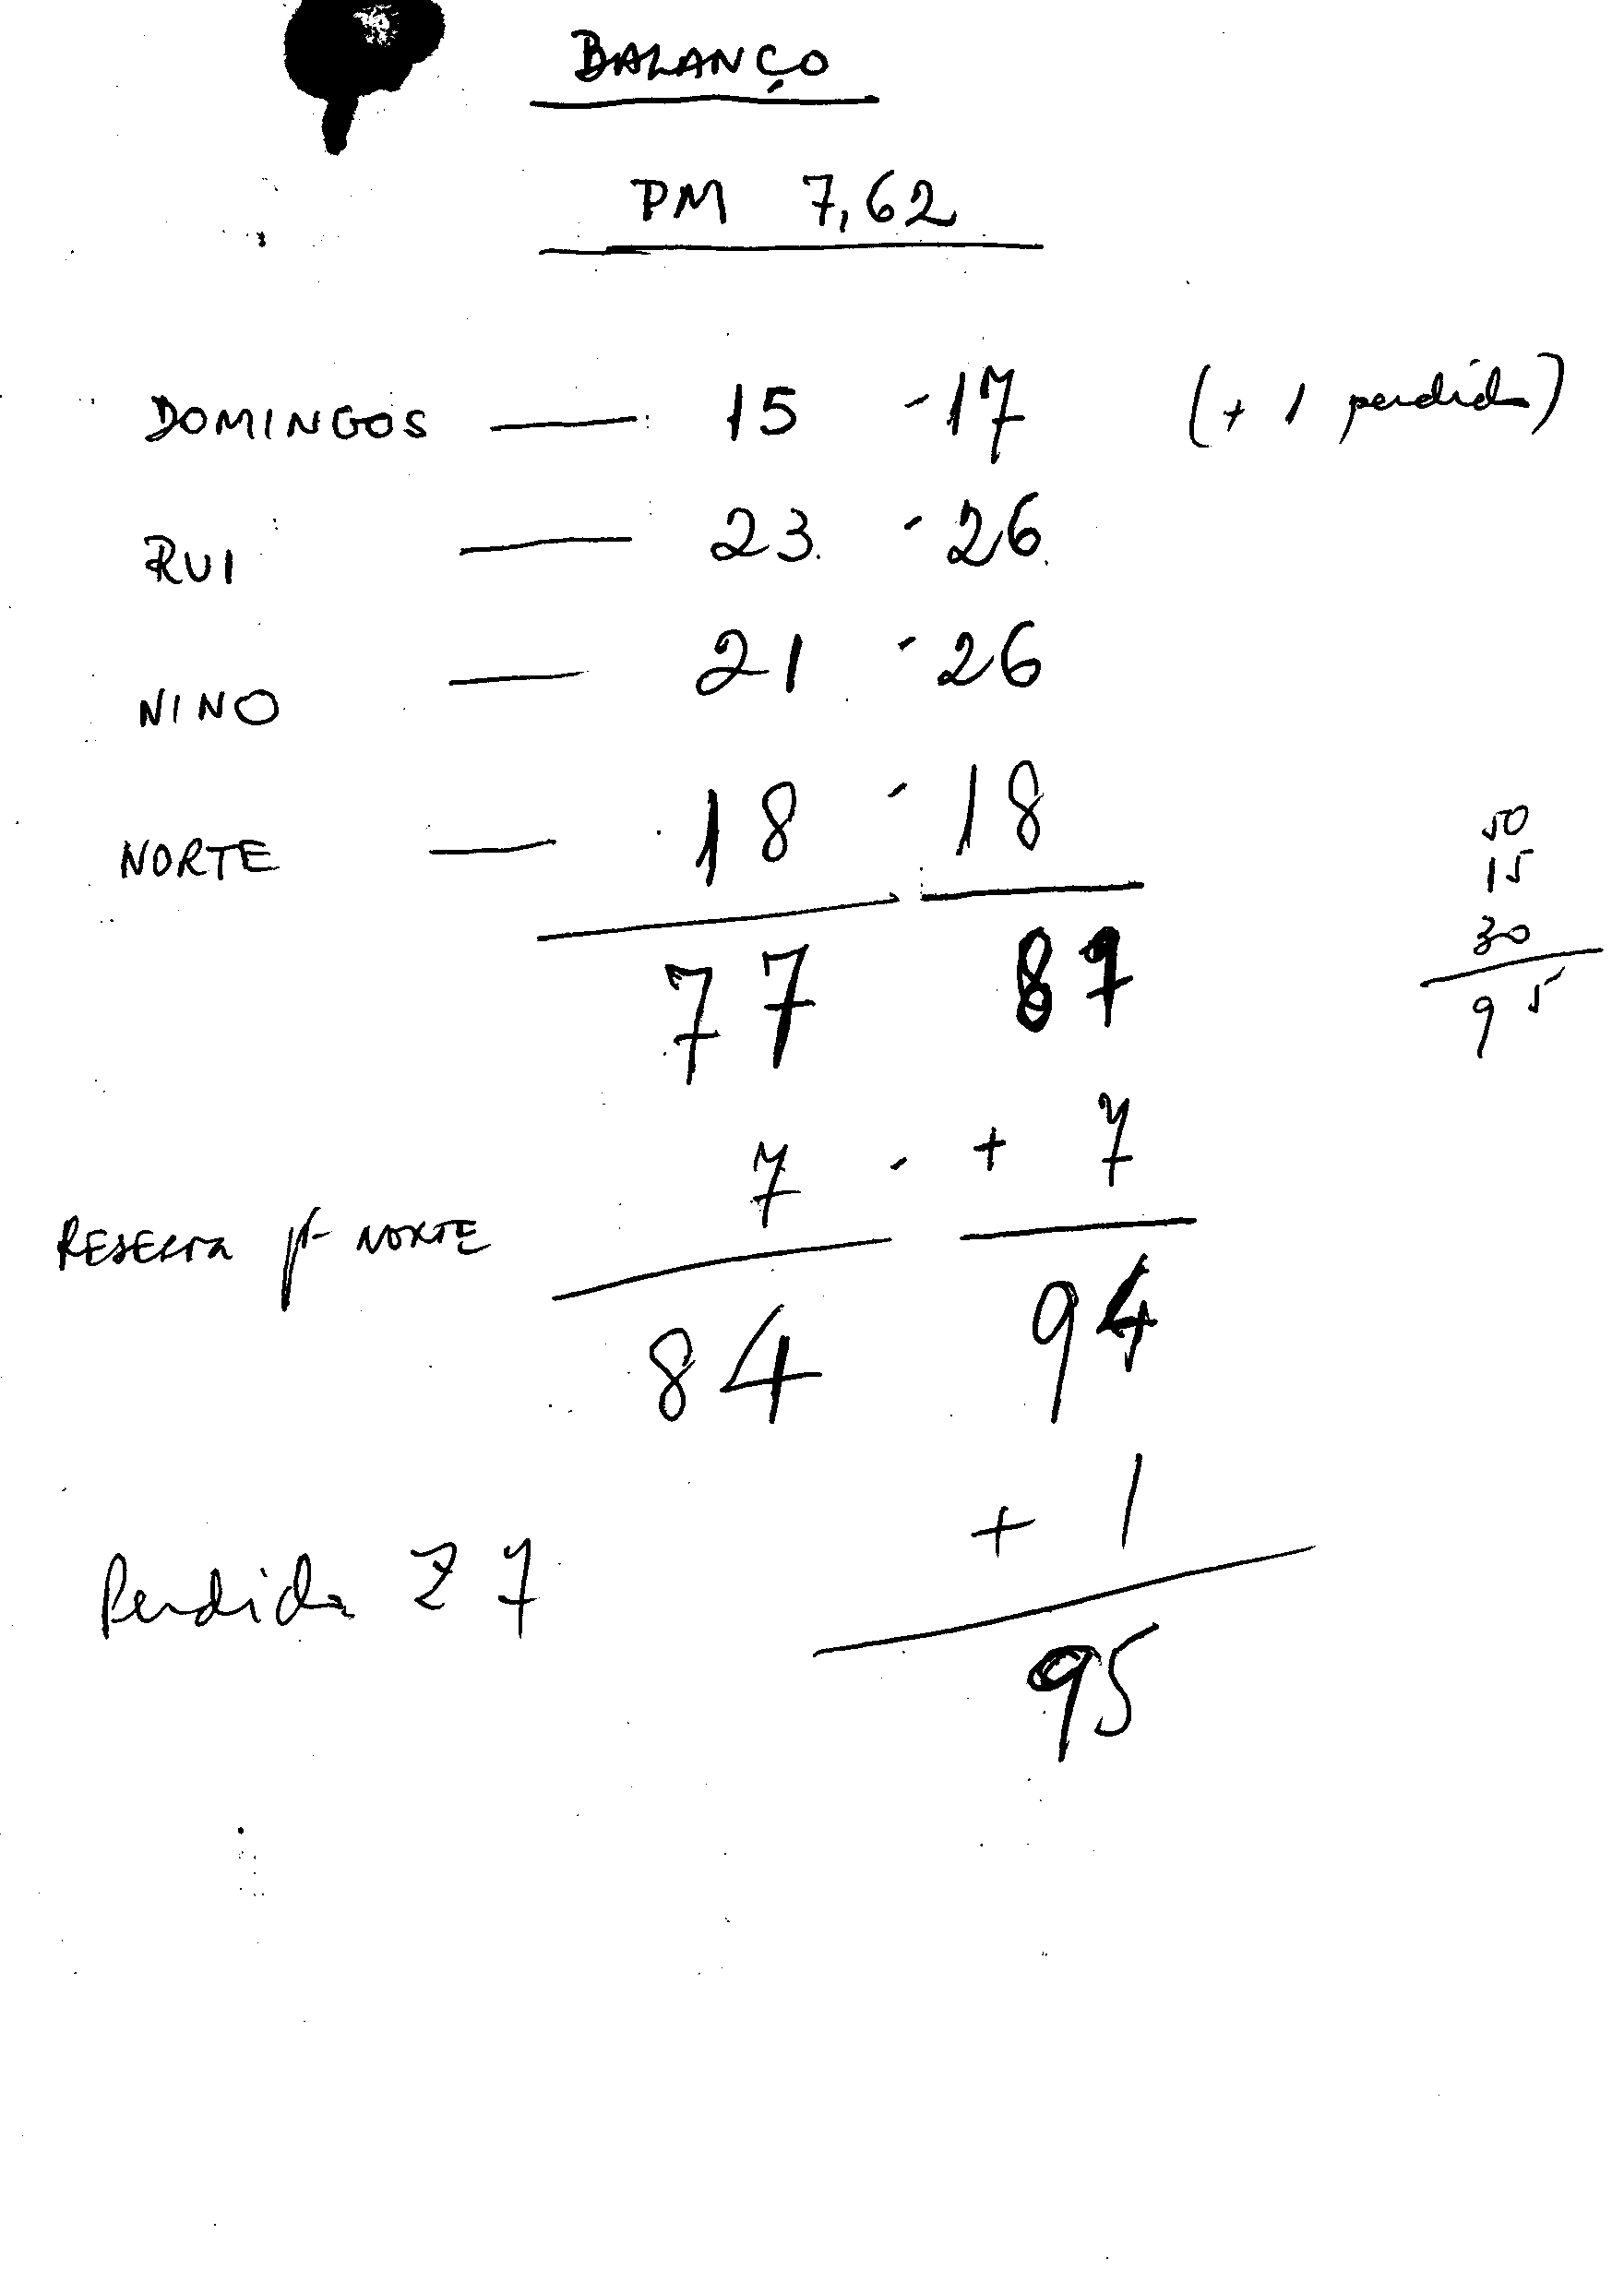 BALANÇO
PM 7,62
DOMINGOS — 15 - 17 (+ 1 perdida)
RUI — 23 - 26
NINO — 21 - 26
NORTE — 18 - 18
77 87
50
15
30
95
7 - + 7
RESERVA p/ NORTE
84 94
+ 1
Perdida Z 7
95